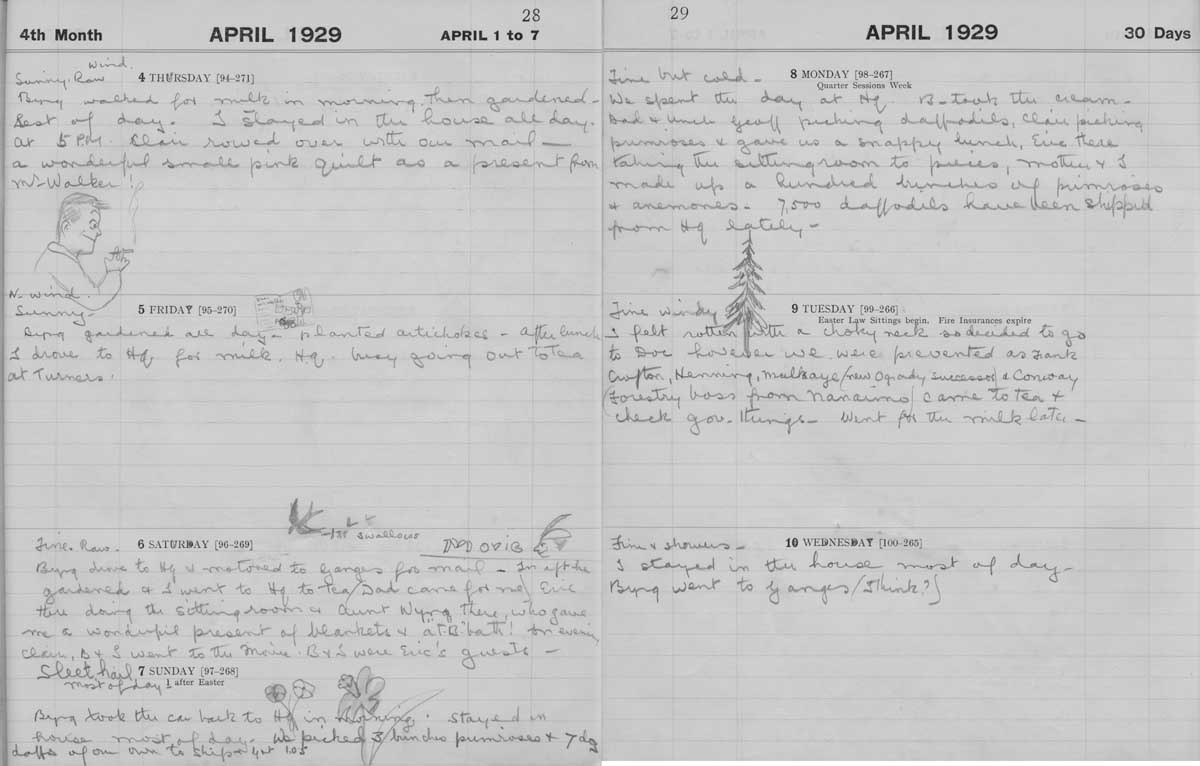 28
4th Month APRIL 1929 APRIL 1 to 7
Sunny. Raw wind.
4 THURSDAY [94-271]
Byng walked for milk in morning, then gardened
Rest of day. I stayed in the house all day.
at 5 P.M. Clair rowed over with our mail —
a wonderful small pink quilt as a present from
Mrs Walker!
N- wind.
Sunny-
5 FRIDAY [95-270]
Byng gardened all day - planted artichokes - After lunch
I drove to Hq for milk. Hq. busy going out to tea
at Turners.
1st swallows
Fine. Raw.
6 SATURDAY [96-269]
Byng drove to Hq & motored to Ganges for mail - In aft he
gardened & I went to Hq to tea (Dad came for me) Eric
there doing the sitting room & Aunt Wyng there, who gave
me a wonderful present of blankets & a T.B. bath! In evening
Clair, B & I went to the Movie. B & I were Eric's guests —
Sleet, hail
most of day
7 SUNDAY [97-268]
1 after Easter
Byng took the car back to Hq in morning. Stayed in
house most of day. We picked 3 bunches primroses & 7 doz
daffs of our own to ship & got 105
29
APRIL 1929 30 Days
Fine but cold -
8 MONDAY [98-267]
Quarter Sessions Week
We spent the day at Hq B- took the cream -
Dad & Uncle Geoff picking daffodils, Clair picking
primroses & gave us a snappy lunch, Eric there
taking the sitting room to pieces, mother & I
made up a hundred bunches of primroses
& anemones - 7,500 daffodils have been shipped
from Hq lately -
Fine windy
9 TUESDAY [99-266]
Easter Law Sittings begin. Fire Insurances expire
I felt rotten with a choky neck so decided to go
to Doc however we were prevented as Frank
Crofton, Henning, Mulkaye (new Ogrady successor) & Conway
(Forestry boss from Nanaimo) came to tea &
check gov. things - Went for the milk later -
Fine & showers -
10 WEDNESDAY [100-265]
I stayed in the house most of day -
Byng went to Ganges (I think?)